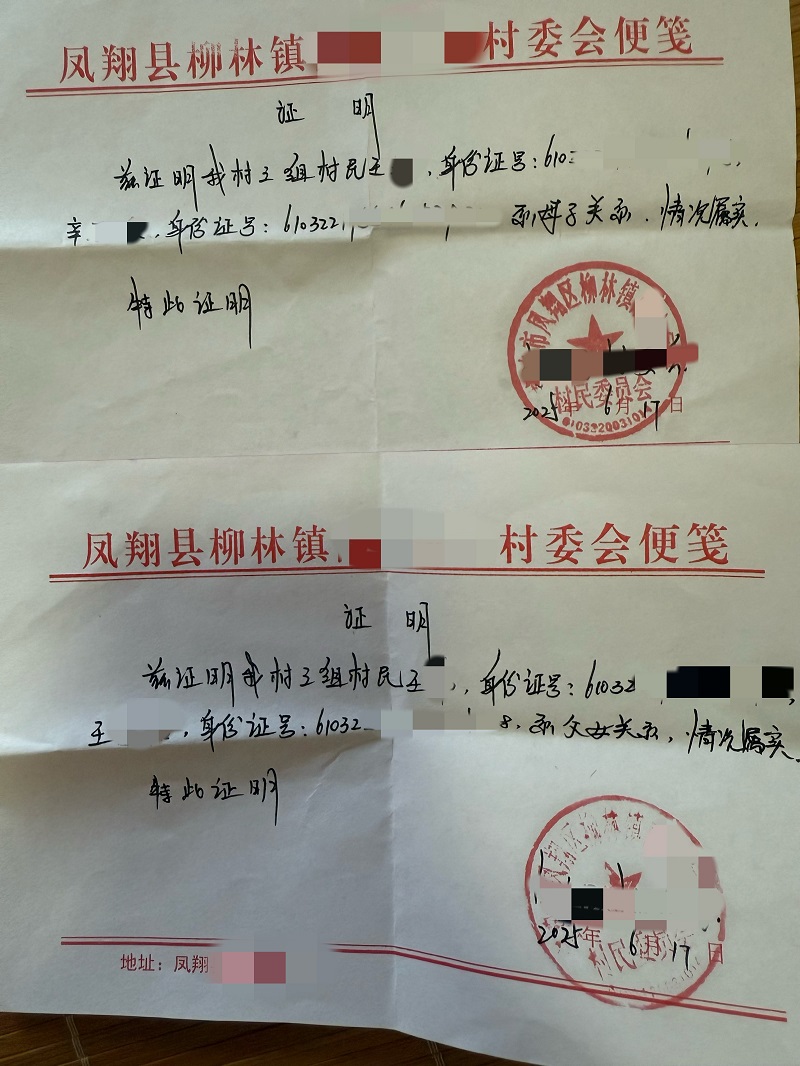 凤翔县柳林镇 村委会便笺
证 明
兹证明我村三组村民王 ，身份证号：610
辛 ，身份证号：610322 系母子关系，情况属实。
特此证明
市凤翔区柳林镇
村民委员会
2025年6月17日
凤翔县柳林镇 村委会便笺
证 明
兹证明我村三组村民王 ，身份证号：61032 ，
王 ，身份证号：61032 8，系父女关系，情况属实
特此证明
凤翔区柳林镇
2025年6月17日
地址：凤翔